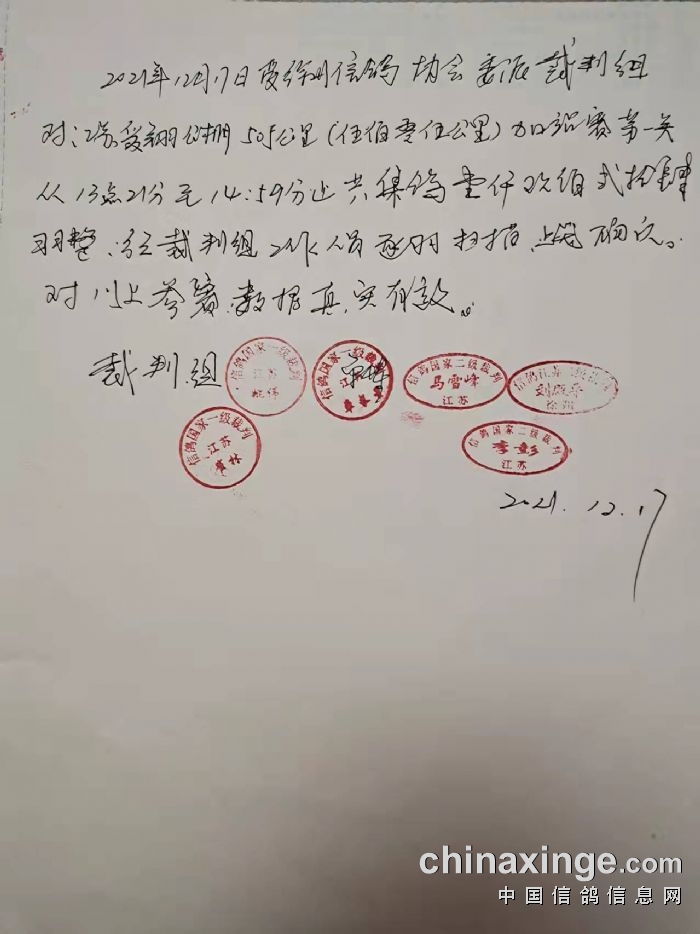 2021年12月17日受徐州信鸽协会委派裁判组
对江苏爱翔棚505公里(伍佰零伍公里)加站赛第一关
从13点21分至14:59分止共集鸽壹仟玖佰式拾肆
羽整,经裁判组工作人员逐羽扫描上笼确认。
对以上参赛数据真实有效。
裁判组
信鸽国家一级裁判
江苏
信鸽国家一级裁判
江苏
信鸽国家二级裁判
马雪峰
江苏
徐州
信鸽国家一级裁判
江苏
信鸽国家二级裁判
李彭
江苏
2021.12.17
chinaxinge.com
中国信鸽信息网